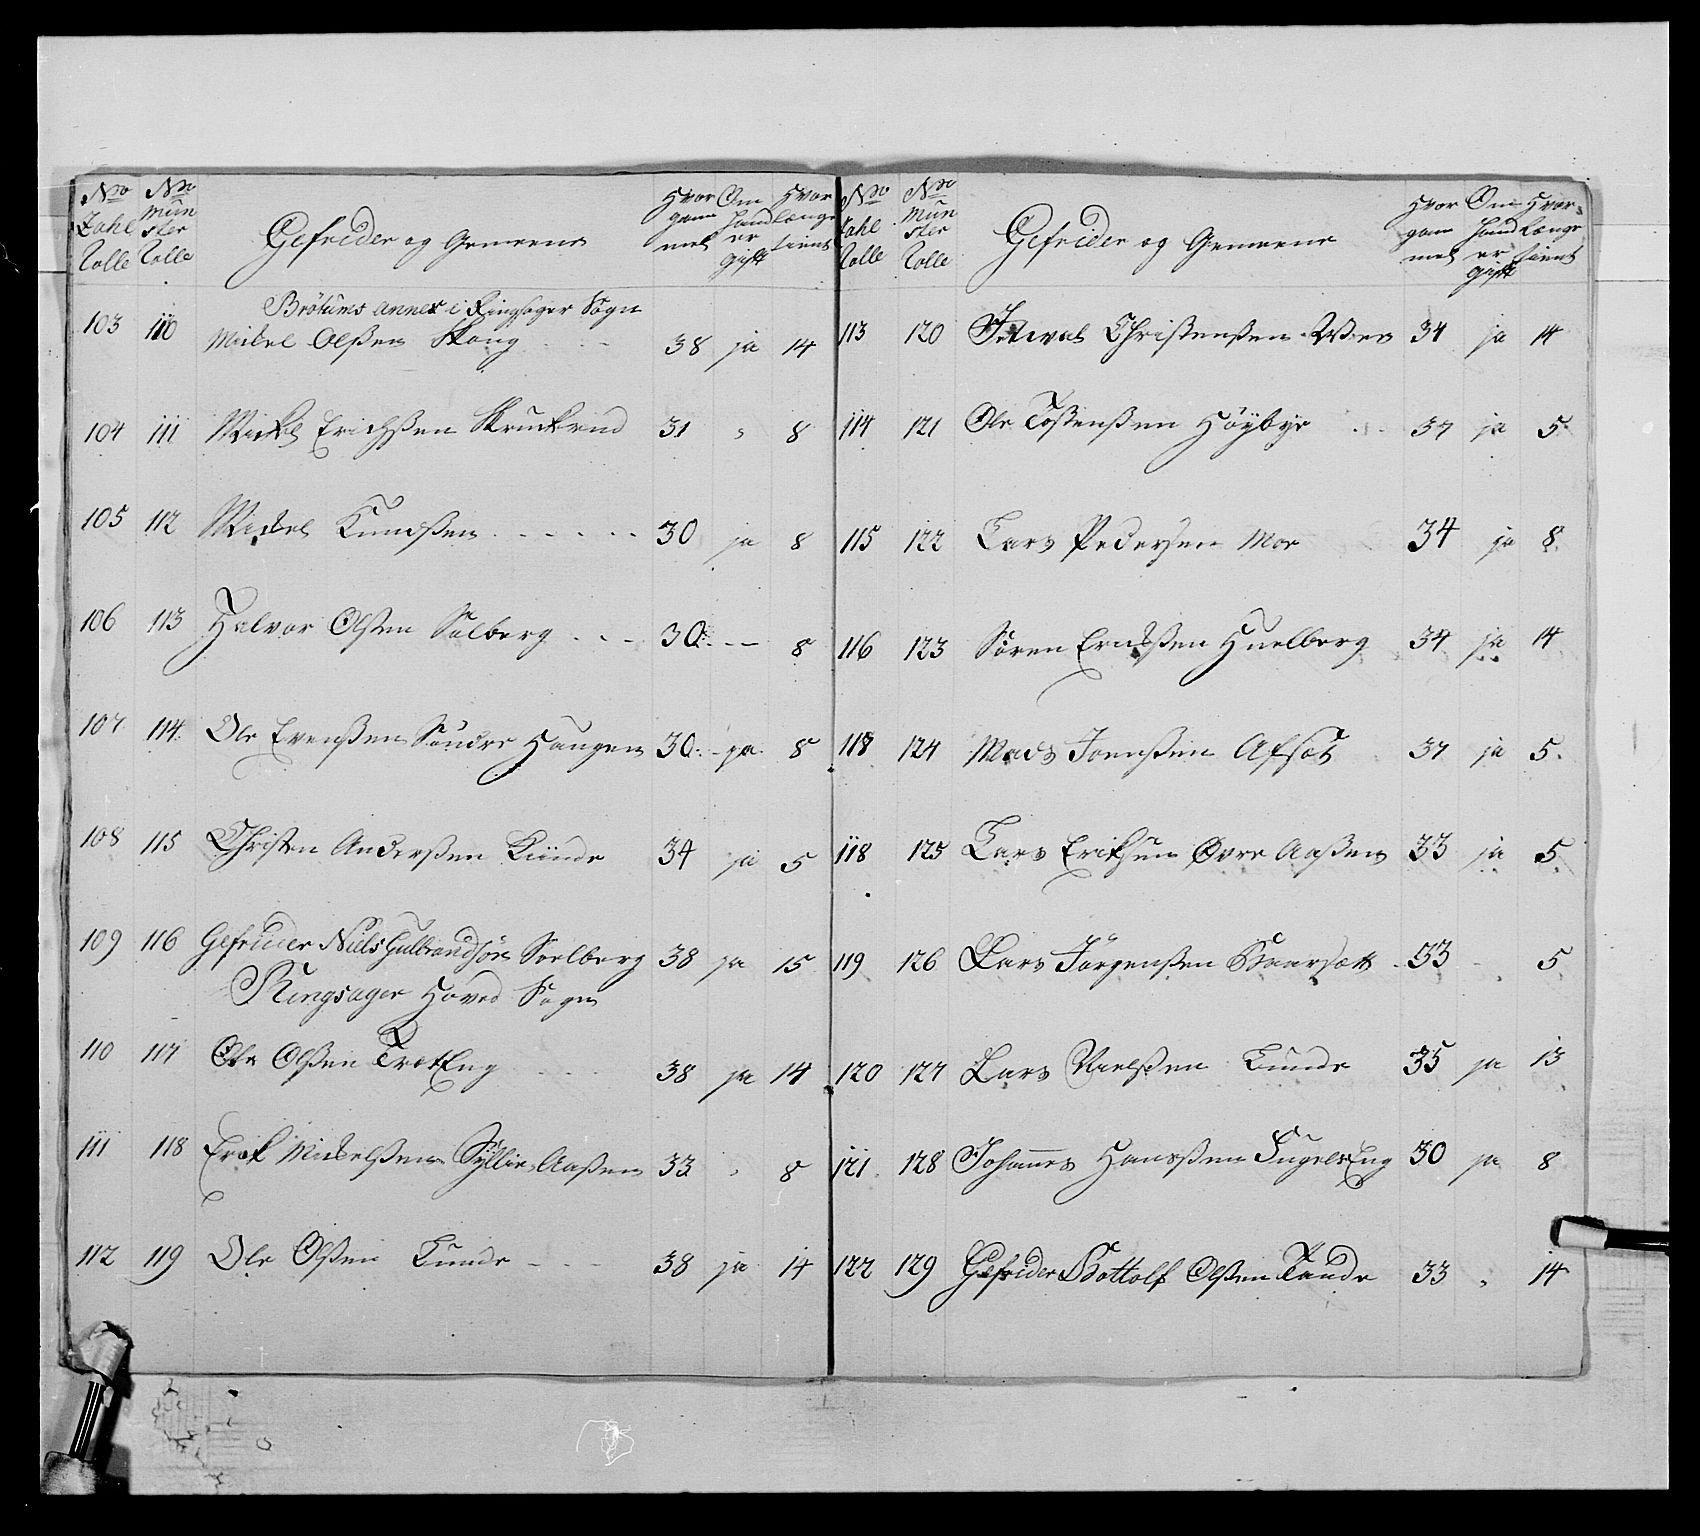 No Zahl Rolle | No Mün ster Rolle | Gefreider og Gemeene | Hvor gam mel | Om Hand er gift | Hvor længe tient
Brötums annex i Ringsager Sogn
103 110 Mickel Olßen Skoug - - 38 ja 14
104 111 Mickel Erichßen Skruckrud 31 " 8
105 112 Mickel Knudßen - - - - - - 30 ja 8
106 113 Halvor Olßen Solberg - - - 30 - - 8
107 114 Ole Evenßen Söndre Haugen 30 - ja 8
108 115 Christen Anderßen Lunde 34 ja 5
109 116 Gefreider Niels Gulbrandsön Soelberg 38 ja 15
Ringsager Hoved Sogn
110 117 Ole Olßen TrætEng - - - 38 ja 14
111 118 Erik Mickelßen Aaßen 33 " 8
112 119 Ole Olßen Lunde - - - 38 ja 14
No Zahl Rolle | No Mün ster Rolle | Gefreider og Gemeene | Hvor gam mel | Om Hand er gift | Hvor længe tient
113 120 Christenßen 34 ja 14
114 121 Ole Tostenßen Höybye - - 37 ja 5
115 122 Lars Pedersen Moe 34 ja 8
116 123 Sören Erickßen Huelberg 34 ja 14
118 124 Mads Joenßen Afsæt 37 ja 5
118 125 Lars Eriksen Övre Aaßen 33 ja 5
119 126 Lars Jörgenßen 33 - 5
120 127 Lars Nielßen Lunde 35 ja 13
121 128 Johannes Hansßen FugelsEng 30 ja 8
122 129 Gefreider Bottolf Olßen Taude 33 " 14